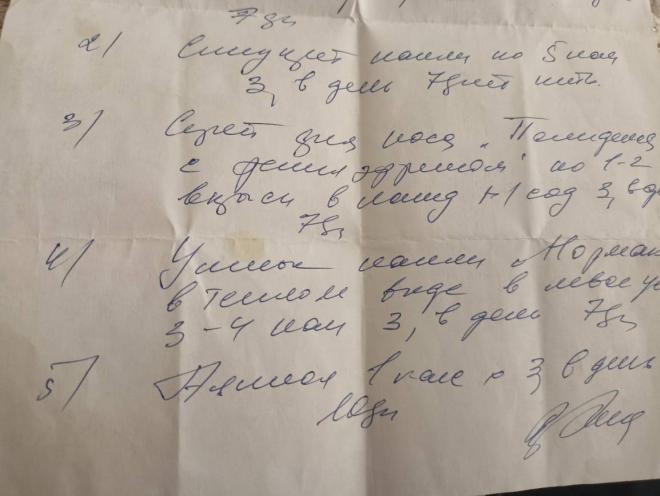 7 дн
2) Синупрет капли по 5 кап
3 р в день 7 дней пить.
3) Спрей для носа „Полидекса
с фенилэфрином" по 1-2
впрыск в кажд н/ход 3 р в
7 дн
4) Ушные капли „Нормак
в теплом виде в левое у
3-4 кап 3 р в день 7 дн
5) 1 капс х 3 р в день
10 дн